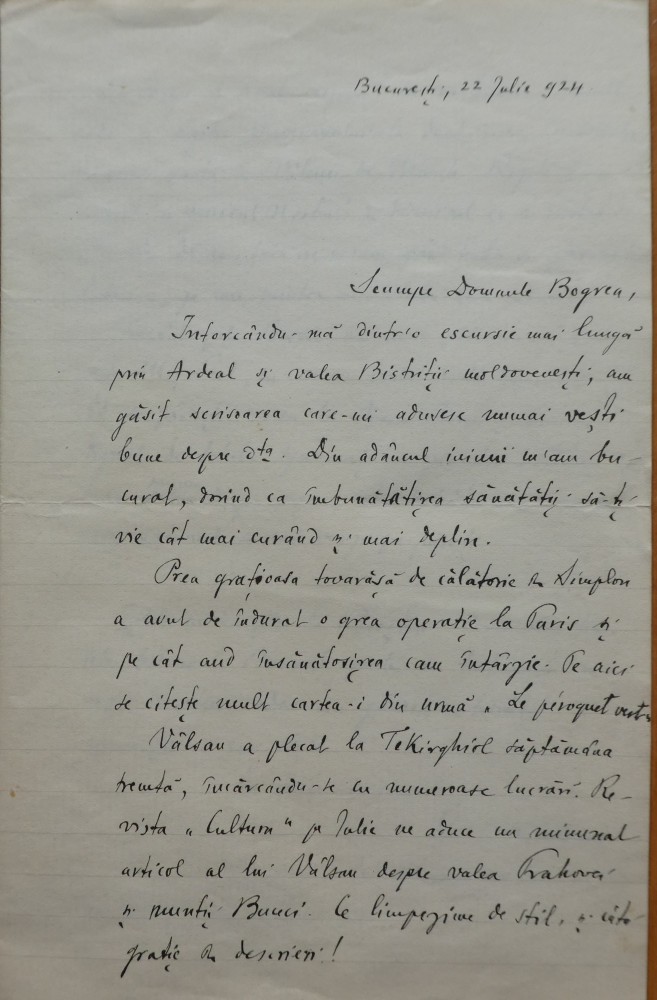 București, 22 Iulie 924
Scumpe Domnule Bogrea,
Intorcându-mă dintr'o escursie mai lungă
prin Ardeal și valea Bistriții moldovenești, am
găsit scrisoarea care-mi aduse numai vești
bune despre dta. Din adâncul inimii m'am bu-
curat, dorind ca îmbunătățirea sănătății să-ți
vie cât mai curând și mai deplin.
Prea grațioasa tovarășă de călătorie în Simplon
a avut de îndurat o grea operație la Paris și
pe cât aud însănătoșirea cam întârzie. Pe aici
se citește mult cartea-i din urmă „Le péroquet vert"
Vâlsan a plecat la Tekirghiol săptămâna
trecută, încărcându-se cu numeroase lucrări. Re-
vista „Cultura" pe Iulie ne aduce un minunat
articol al lui Vâlsan despre valea Prahovei
și munții Bucegi. Ce limpezime de stil, și câtă
grație în descrieri!